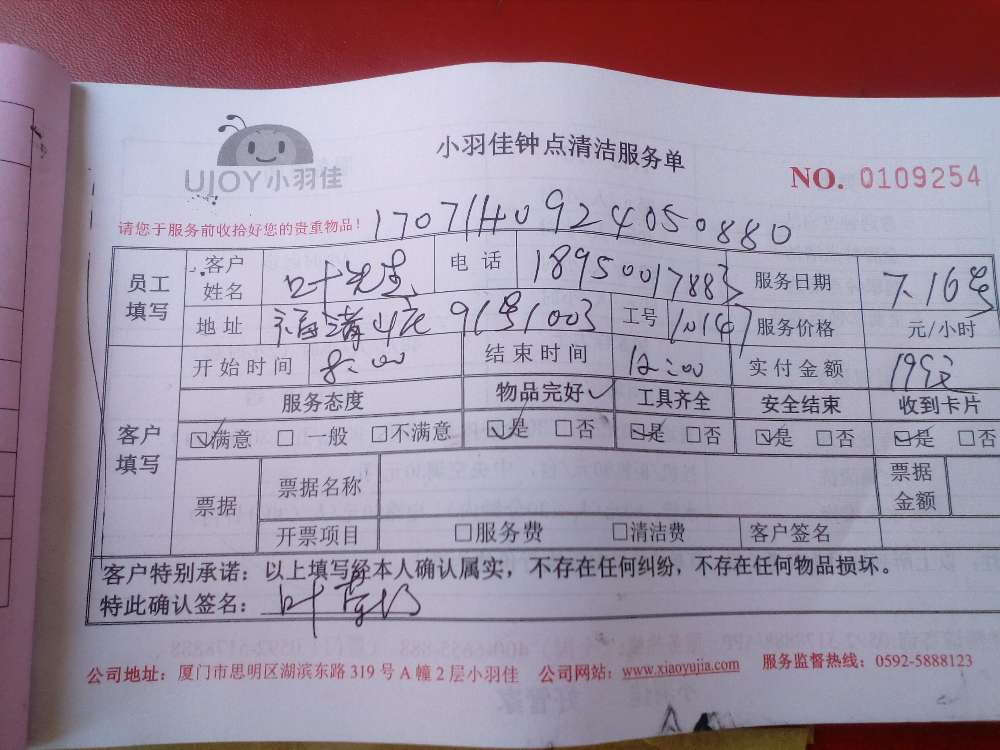 小羽佳钟点清洁服务单
UJOY小羽佳
NO. 0109254
请您于服务前收拾好您的贵重物品! 17071140924050880
员工填写 客户姓名 叶先生 电话 18950017883 服务日期 7.16号
地址 91号1003 工号 10147 服务价格 元/小时
开始时间 8:00 结束时间 12:00 实付金额
服务态度 物品完好 工具齐全 安全结束 收到卡片
客户填写 ☑满意 □一般 □不满意 ☑是 □否 ☑是 □否 ☑是 □否 ☑是 □否
票据 票据名称 票据金额
开票项目 □服务费 □清洁费 客户签名
客户特别承诺:以上填写经本人确认属实,不存在任何纠纷,不存在任何物品损坏。
特此确认签名: 叶
公司地址:厦门市思明区湖滨东路319号A幢2层小羽佳 公司网站:www.xiaoyujia.com 服务监督热线:0592-5888123